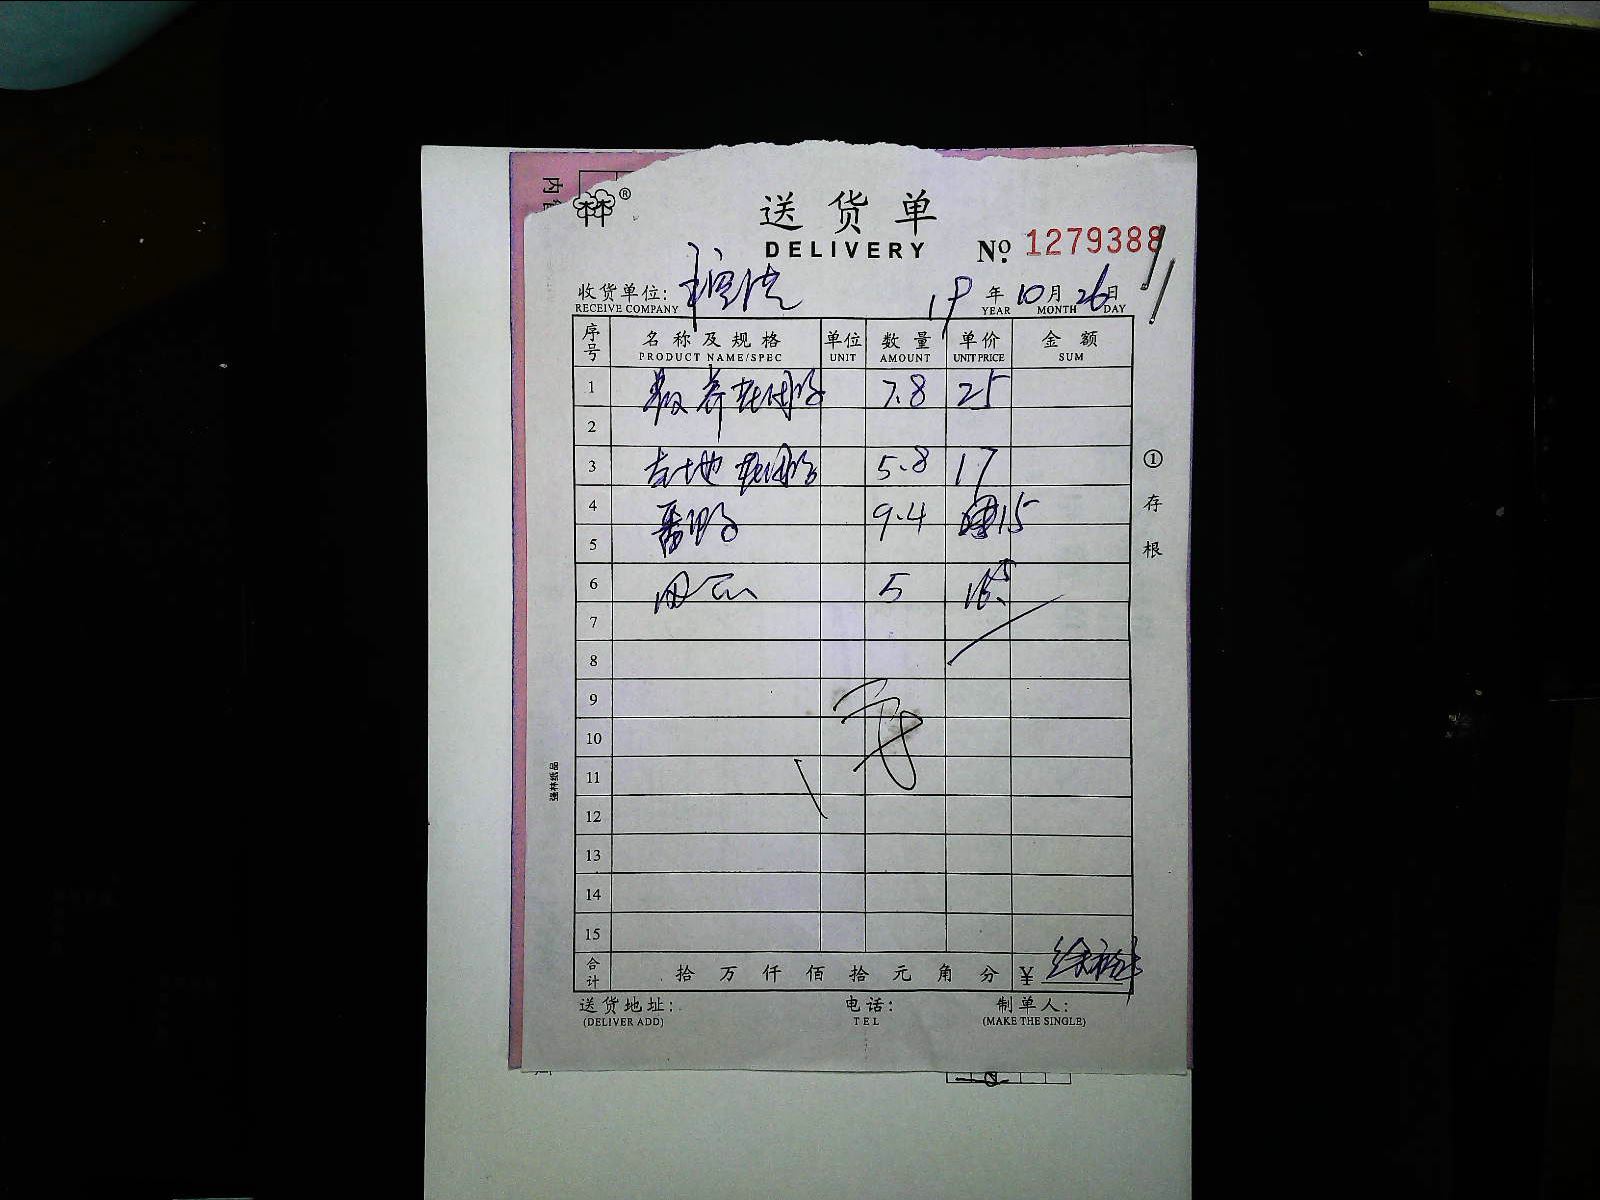 ®
送货单
DELIVERY
No. 1279388
收货单位:
RECEIVE COMPANY
19年10月26日
YEAR MONTH DAY
序号 名称及规格 单位 数量 单价 金额
PRODUCT NAME/SPEC UNIT AMOUNT UNIT PRICE SUM
1 7.8 25
2
3 本地 5.8 17
4 番鸭 9.4 15
5
6 5
7
8
9
10
11
12
13
14
15
合计 拾万仟佰拾元角分 ¥
送货地址: 电话: 制单人:
(DELIVER ADD) TEL (MAKE THE SINGLE)
①存根
强林纸品